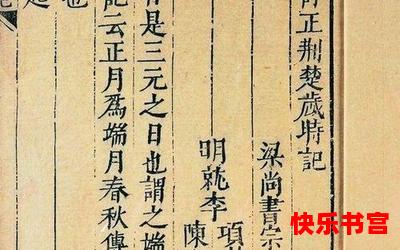 正荆楚歲時記
梁尚書宗
明就李
項
陳
是三元之日也謂之端
記云正月爲端月春秋傳
也
快乐书宫